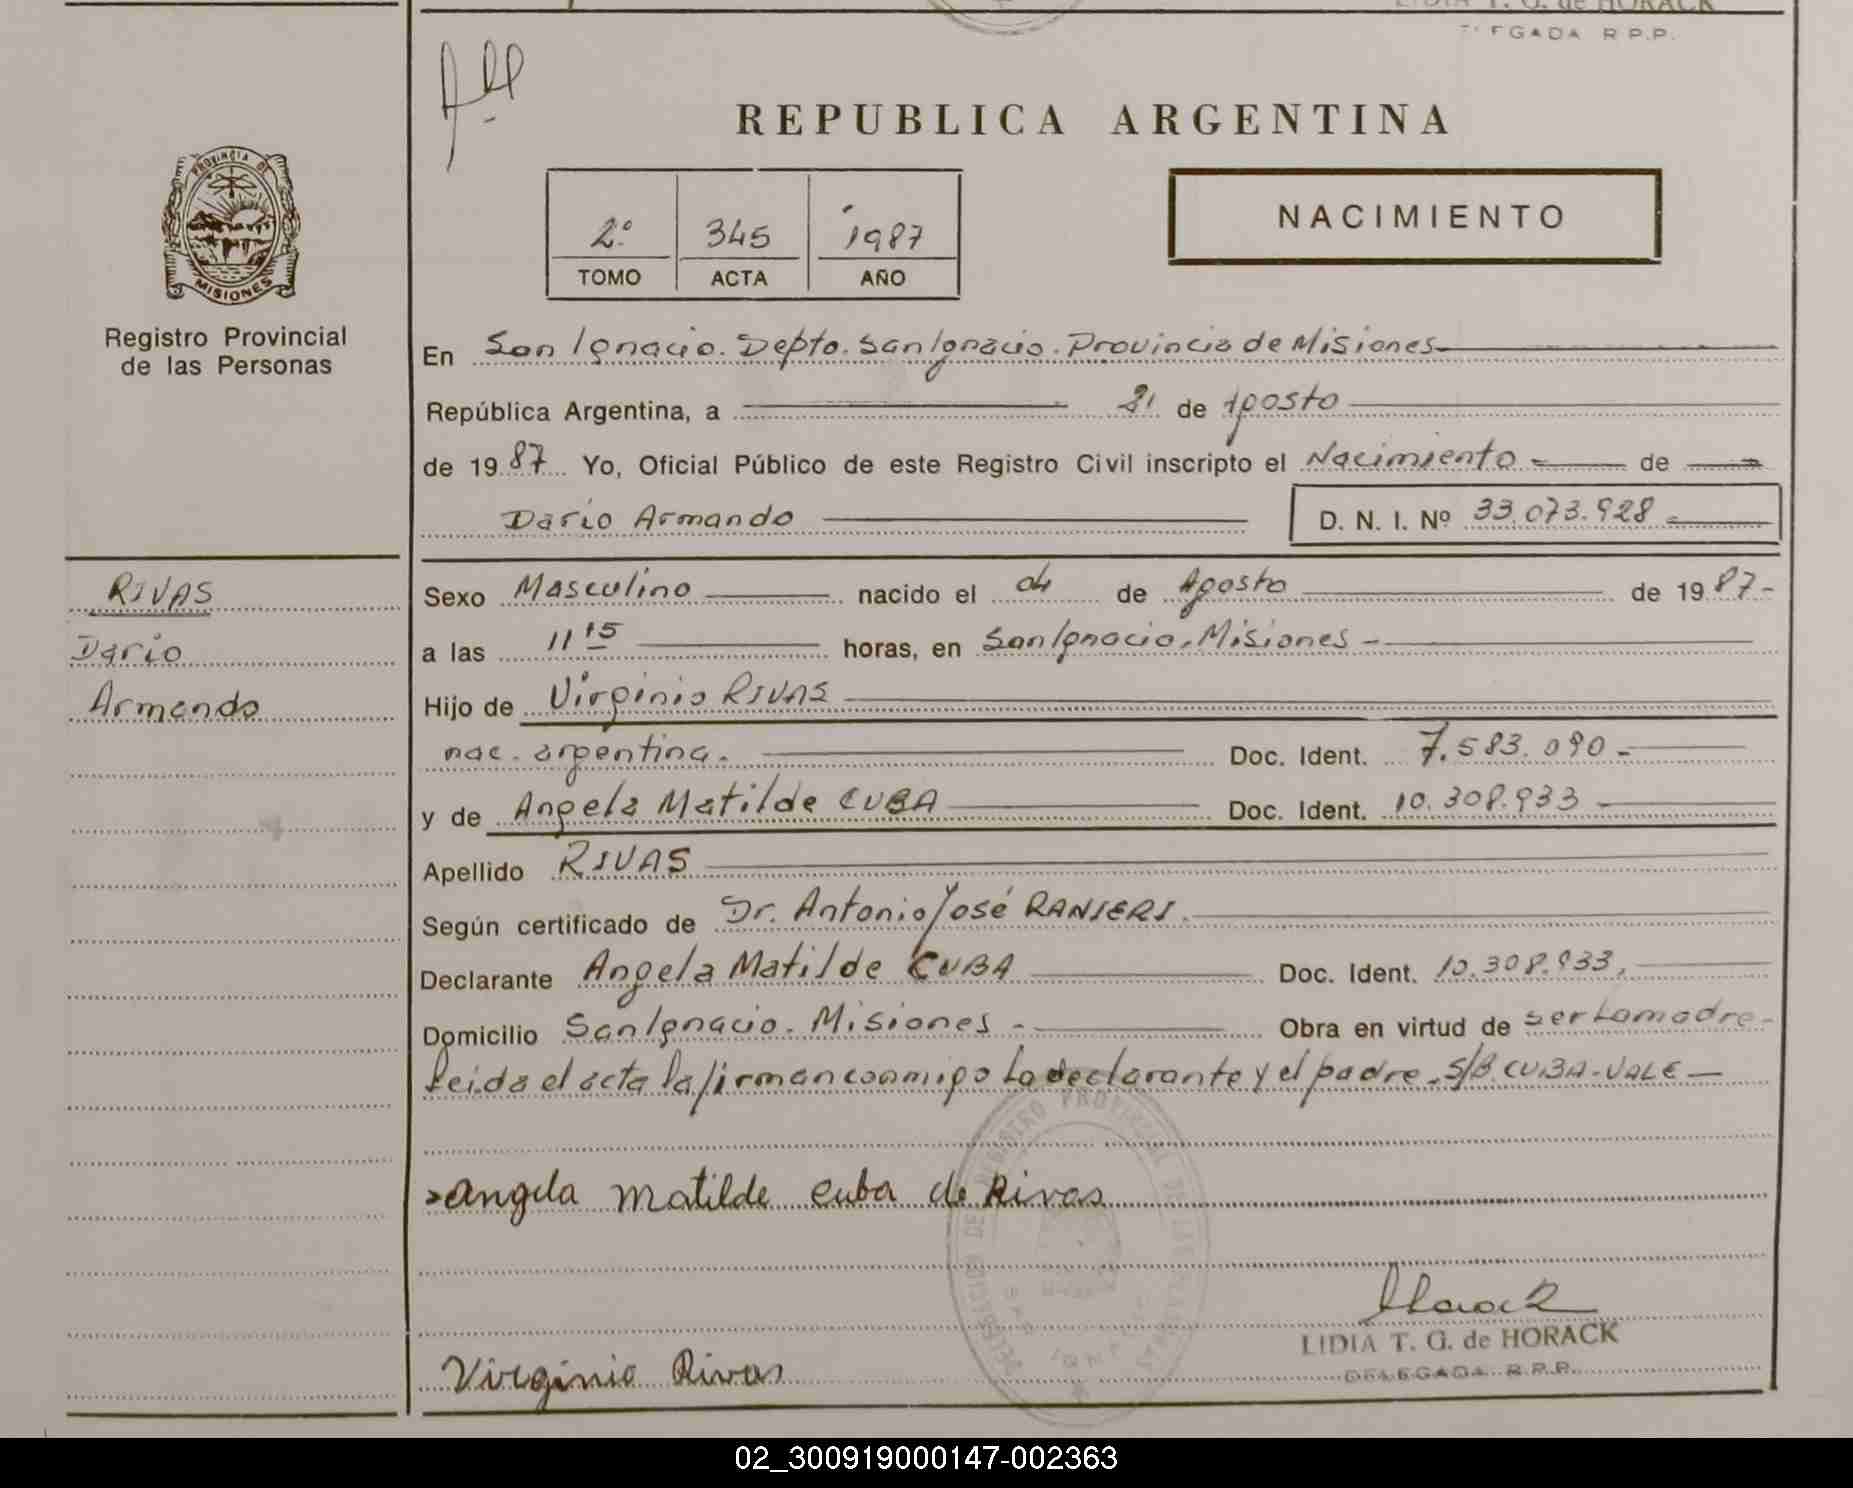 LIDIA T. G. de HORACK
DELEGADA R.P.P.
REPUBLICA ARGENTINA
PROVINCIA DE
MISIONES
Registro Provincial
de las Personas
2º 345 1987
TOMO ACTA AÑO
NACIMIENTO
En San Ignacio. Depto. San Ignacio. Provincia de Misiones
República Argentina, a 21 de Agosto
de 1987 Yo, Oficial Público de este Registro Civil inscripto el Nacimiento de
Darío Armando D. N. I. Nº 33.073.928
RIVAS
Darío
Armando
Sexo Masculino nacido el 04 de Agosto de 1987-
a las 11 15 horas, en San Ignacio, Misiones -
Hijo de Virginio RIVAS
nac. argentina. Doc. Ident. 7.583.090-
y de Angela Matilde CUBA Doc. Ident. 10.308.933-
Apellido RIVAS
Según certificado de Dr. Antonio José RANIERI.
Declarante Angela Matilde CUBA Doc. Ident. 10.308.933,
Domicilio San Ignacio. Misiones - Obra en virtud de ser la madre-
Leída el acta la firman conmigo la declarante y el padre. S/B. CUBA-VALE-
Angela Matilde Cuba de Rivas
Horack
LIDIA T. G. de HORACK
DELEGADA R.P.P.
Virginio Rivas
02_300919000147-002363